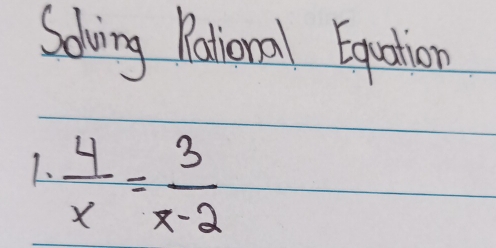 Solving Rational Equation
1. 4/x = 3/x-2